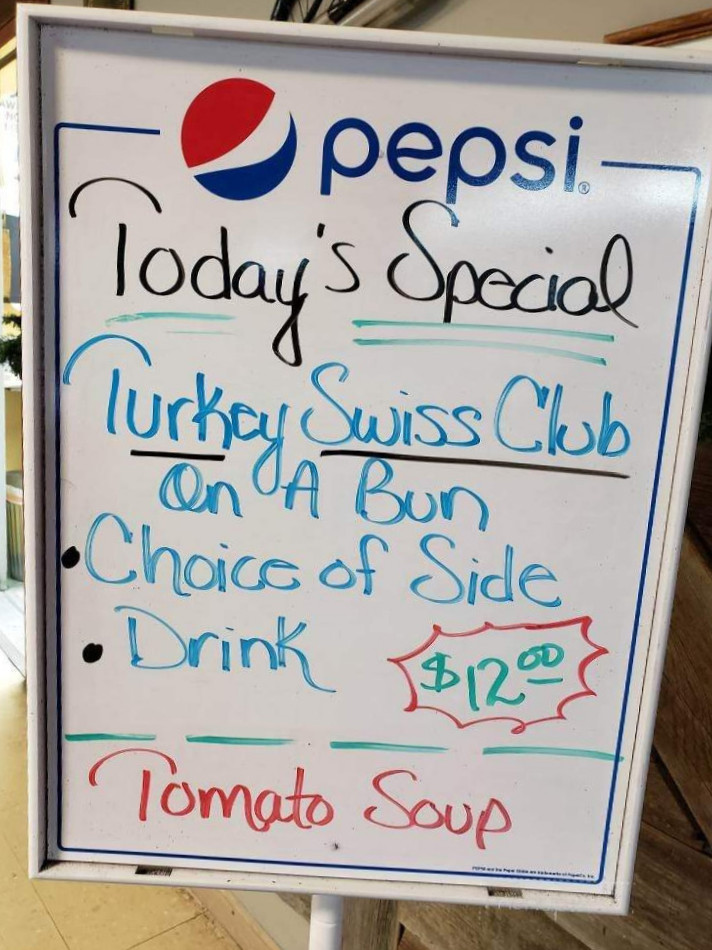 pepsi®
Today's Special
Turkey Swiss Club
On A Bun
• Choice of Side
• Drink
$12.00
Tomato Soup